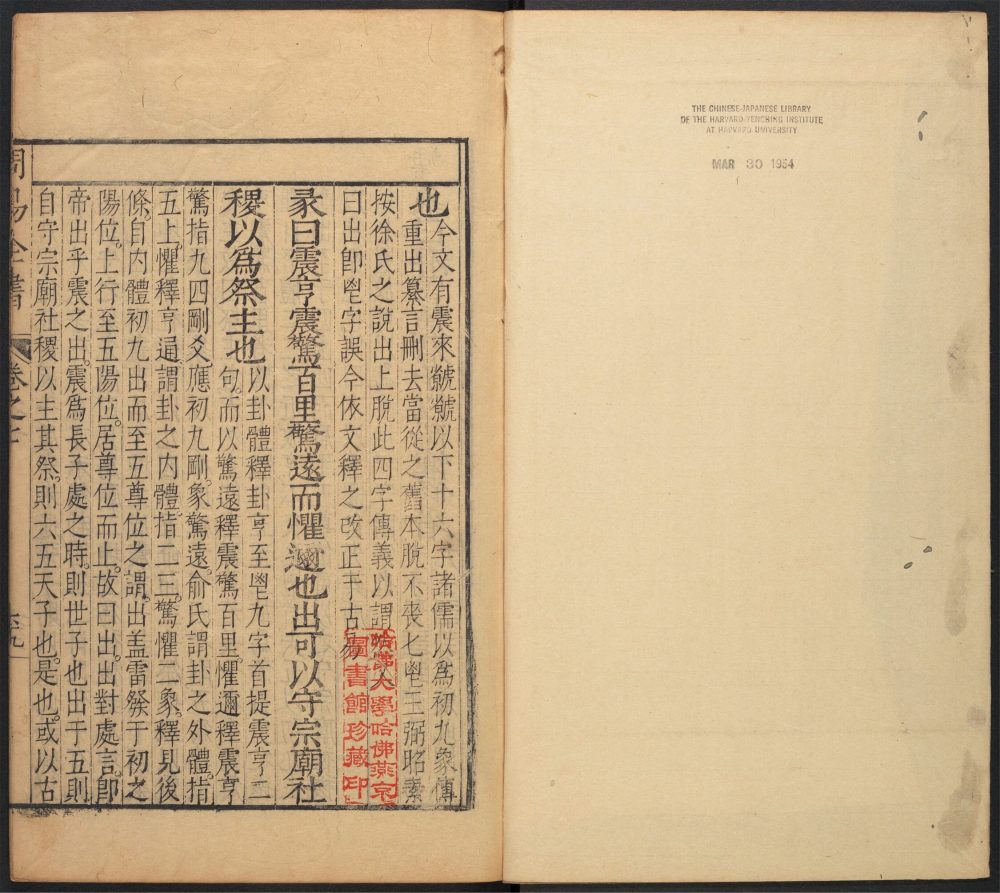 THE CHINESE-JAPANESE LIBRARY
OF THE HARVARD-YENCHING INSTITUTE
AT HARVARD UNIVERSITY
MAR 30 1954
也
今文有震來虩虩以下十六字諸儒以爲初九象傳
重出纂言刪去當從之舊本脫不喪匕鬯王弼昭素
按徐氏之說出上脫此四字傳義以謂
曰出卽鬯字誤今依文釋之改正于古易
彖曰震亨震驚百里驚遠而懼邇也出可以守宗廟社
稷以爲祭主也
以卦體釋卦亨至鬯九字首提震亨二
句。而以驚遠釋震驚百里。懼邇釋震亨
驚指九四剛爻。應初九剛。象驚遠。俞氏謂卦之外體。指
五上。懼釋亨通。謂卦之内體。指二三。驚懼二象。釋見後
條。自内體初九出而至五尊位之謂。出盖雷發于初之
陽位。上行至五陽位。居尊位而止。故曰出。出對處言。卽
帝出乎震之出。震爲長子處之時。則世子也出于五則
自守宗廟社稷以主其祭。則六五天子也。是也。或以古
周易全書
卷之
哈佛大學哈佛燕京
圖書館珍藏印